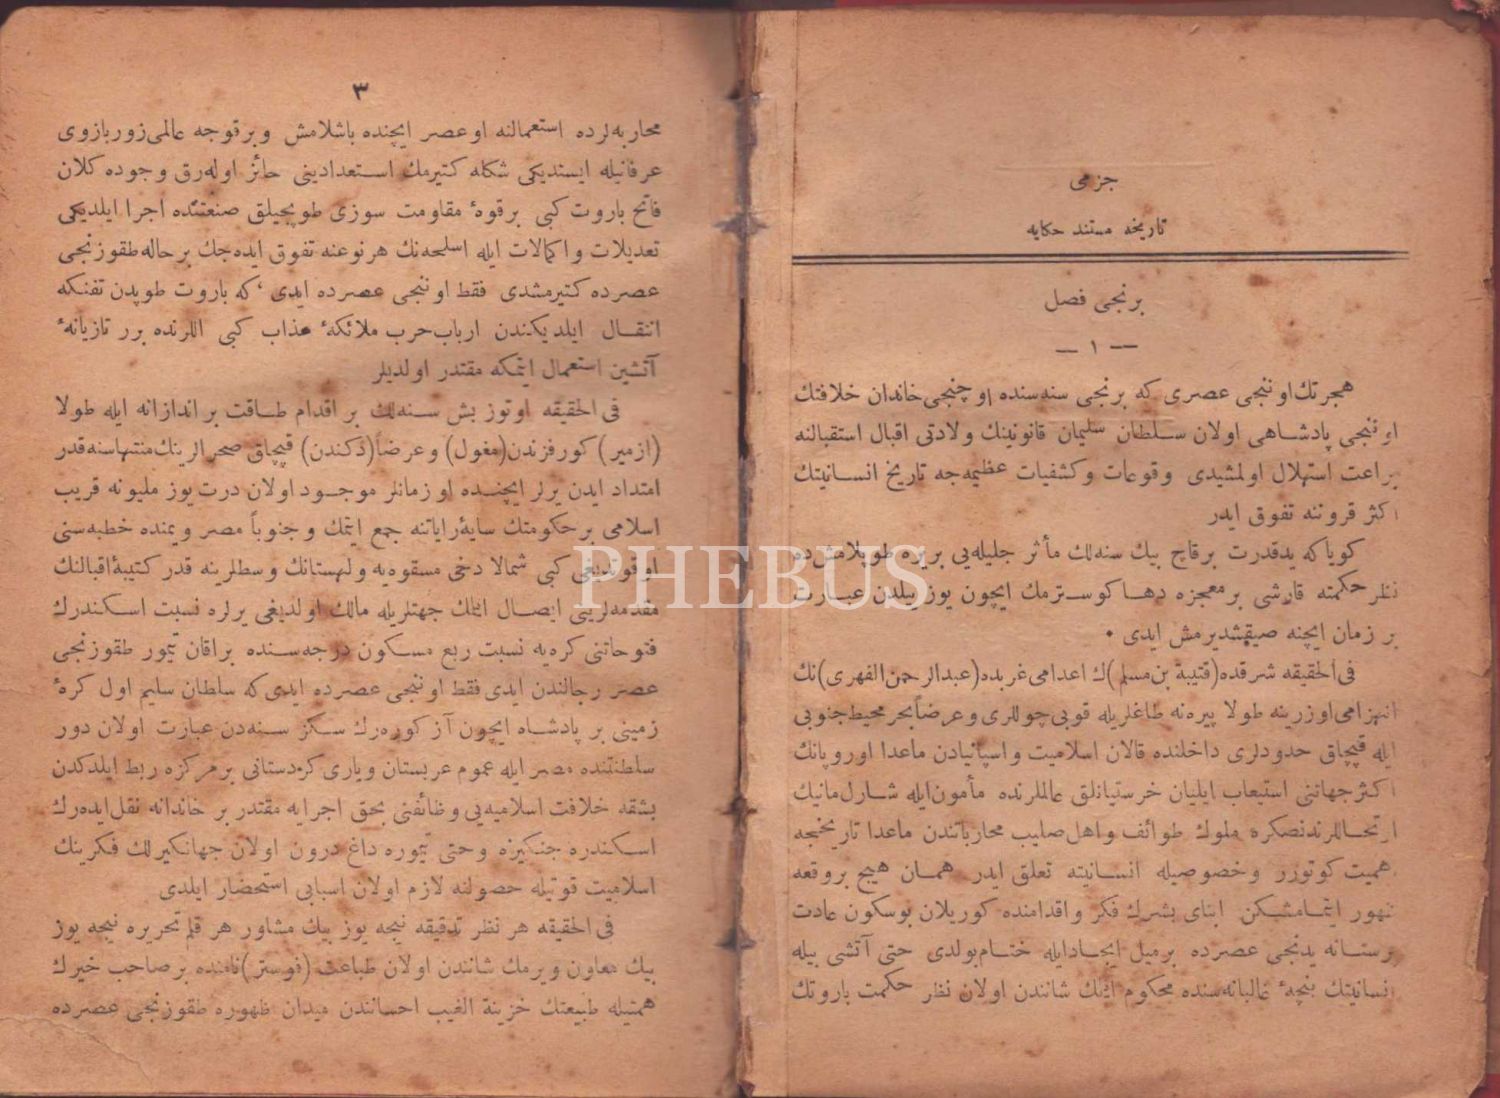 جزمی
تاریخه مستند حکایه
برنجی فصل
— ١ —
هجرتك اوننجی عصری که برنجی سنه‌سنده اوچنجی خاندان خلافتك
اوننجی پادشاهی اولان سلطان سلیمان قانونینك ولادتی اقبال استقبالنه
براعت استهلال اولمشیدی وقوعات وکشفیات عظیمه‌جه تاریخ انسانیتك
اکثر قروننه تفوق ایدر
کویاکه یدقدرت برقاچ بیك سنه‌لك مأثر جلیله‌یی بریره طوپلامش‌ده
نظر حکمته قارشی برمعجزه دها کوسترمك ایچون یوز ییلدن عبارت
بر زمان ایچنه صیقشدیرمش ایدی •
فی‌الحقیقه شرقده (قتیبة بن مسلم)ك اعدامی غربده (عبدالرحمن الفهری)نك
انهزامی اوزرینه طولا پیره‌نه طاغلریله قوبی چوللری وعرضاً بحر محیط جنوبی
ایله قپچاق حدودلری داخلنده قالان اسلامیت واسپانیادن ماعدا اوروپانك
اکثر جهاتنی استیعاب ایلیان خرستیانلق عالملرنده مأمون ایله شارلمانیك
ارتحاللرندنصکره ملوك طوائف واهل صلیب محارباتندن ماعدا تاریخجه
همیت کوتورر وخصوصیله انسانیته تعلق ایدر همان هیچ بروقعه
ظهور ایتمامشیکن ابنای بشرك فکر واقدامنده کوریلان بوسکون عادت
پرستانه یدنجی عصرده برمیل ایجادایله ختام‌بولدی حتی آتشی بیله
نسانیتك پنچهٔ غالبانه‌سنده محکوم ایتك شانندن اولان نظر حکمت باروتك
٣
محاربه‌لرده استعمالنه اوعصر ایچنده باشلامش وبرقوجه عالمی زوربازوی
عرفانیله ایستدیکی شکله کتیرمك استعدادینی حائز اوله‌رق وجوده کلان
فاتح باروت کبی برقوهٔ مقاومت سوزی طوپجیلق صنعتنده اجرا ایلدیکی
تعدیلات واکمالات ایله اسلحه‌نك هرنوعنه تفوق ایده‌جك برحاله طقوزنجی
عصرده کتیرمشدی فقط اوننجی عصرده ایدی ،که باروت طوپدن تفنکه
انتقال ایلدیکندن ارباب‌حرب ملائکهٔ عذاب کبی اللرنده برر تازیانهٔ
آتشین استعمال ایتمکه مقتدر اولدیلر
فی‌الحقیقه اوتوز بش سنه‌لك بر اقدام طاقت براندازانه ایله طولا
(ازمیر) کورفزندن (مغول) وعرضاً (دکندن) قپچاق صحرالرینك منتهاسنه قدر
امتداد ایدن یرلر ایچنده او زمانلر موجود اولان درت یوز ملیونه قریب
اسلامی برحکومتك سایهٔ رایاتنه جمع ایتمك وجنوباً مصر ویمنده خطبه‌سنی
اوقوتدیغی کبی شمالا دخی مسقوه‌یه ولهستانك وسطلرینه قدر کتیبهٔ اقبالنك
مقدمه‌لرینی ایصال ایتمك جهتلریله مالك اولدیغی یرلره نسبت اسکندرك
فتوحاتنی کره‌یه نسبت ربع مسکون درجه‌سنده براقان تیمور طقوزنجی
عصر رجالندن ایدی فقط اوننجی عصرده ایدی که سلطان سلیم اول کرهٔ
زمینی بر پادشاه ایچون آز کوره‌رك سکز سنه‌دن عبارت اولان دور
سلطنتنده مصر ایله عموم عربستان ویاری کردستانی برمرکزه ربط ایلدکدن
بشقه خلافت اسلامیه‌یی وظائفنی بحق اجرایه مقتدر بر خاندانه نقل ایده‌رك
اسکندره جنکیزه وحتی تیموره داغ درون اولان جهانکیرلك فکرینك
اسلامیت قوتیله حصولنه لازم اولان اسبابی استحضار ایلدی
فی‌الحقیقه هر نظر تدقیقه نیجه یوز بیك مشاور هر قلم تحریره نیجه یوز
بیك معاون ویرمك شانندن اولان طباعت (فوستر) نامنده برصاحب خیرك
همتیله طبیعتك خزینة الغیب احسانندن میدان ظهوره طقوزنجی عصرده
PHEBUS